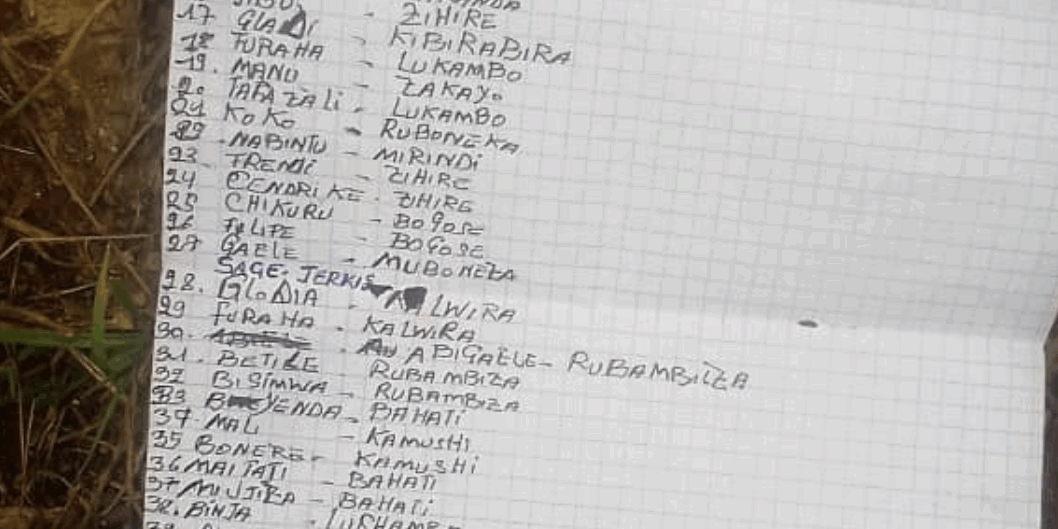 17 GLADI - ZIHIRE
18 FURAHA - KIBIRABIRA
19. MANU - LUKAMBO
20 TAPAZALI - ZAKAYO
21 KOKO - LUKAMBO
22 NABINTU - RUBONEKA
23 TRENDI - MIRINDI
24 CENDRIKE - ZIHIRE
25 CHIKURU - ZIHIRE
26 FELIPE - BOGOSE
27 GAELE - BOGOSE
SAGE-JERKIS - MUBONEZA
28. GLODIA - KALWIRA
29 FURAHA - KALWIRA
30. ABIGAELE - RUBAMBIZA
31. BETILE - RUBAMBIZA
32 BISIMWA - RUBAMBIZA
33 BAYENDA - BAHATI
34 MALI - KAMUSHI
35 BONERE - KAMUSHI
36 MAITATI - BAHATI
37 MUJIRA - BAHATI
38. BINJA